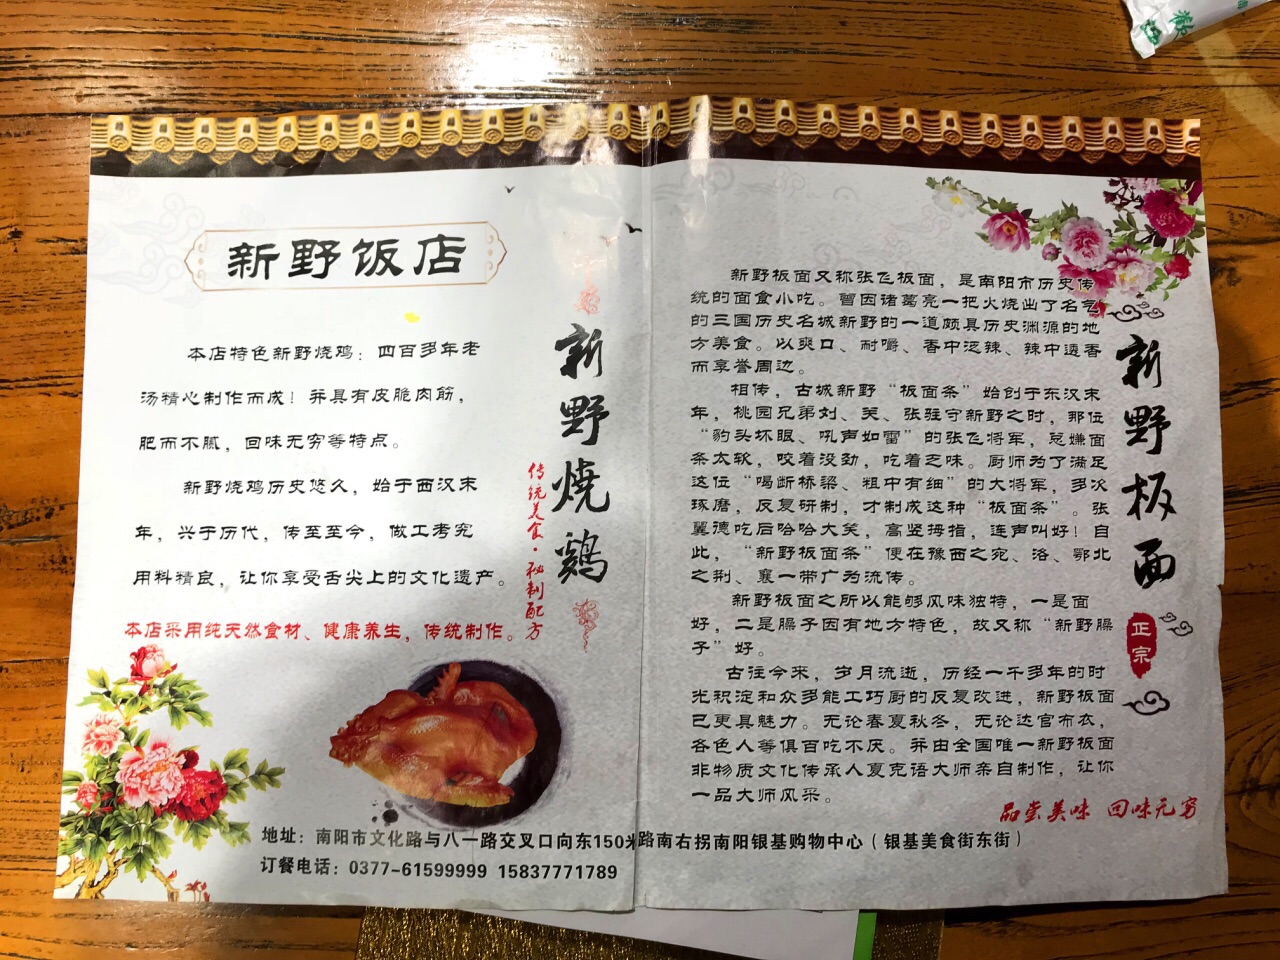 新野饭店
本店特色新野烧鸡：四百多年老
汤精心制作而成！并具有皮脆肉筋，
肥而不腻，回味无穷等特点。
新野烧鸡历史悠久，始于西汉末
年，兴于历代，传至至今，做工考究
用料精良，让你享受舌尖上的文化遗产。
本店采用纯天然食材、健康养生，传统制作。
新野燒鷄
传统美食·秘制配方
新野板面又称张飞板面，是南阳市历史传
统的面食小吃。曾因诸葛亮一把火烧出了名气
的三国历史名城新野的一道颇具历史渊源的地
方美食。以爽口、耐嚼、香中泛辣、辣中透香
而享誉周边。
相传，古城新野“板面条”始创于东汉末
年，桃园兄弟刘、关、张驻守新野之时，那位
“豹头环眼、吼声如雷”的张飞将军，总嫌面
条太软，咬着没劲，吃着乏味。厨师为了满足
这位“喝断桥梁、粗中有细”的大将军，多次
琢磨，反复研制，才制成这种“板面条”。张
翼德吃后哈哈大笑，高竖拇指，连声叫好！自
此，“新野板面条”便在豫西之宛、洛、鄂北
之荆、襄一带广为流传。
新野板面之所以能够风味独特，一是面
好，二是臊子因有地方特色，故又称“新野臊
子”好。
古往今来，岁月流逝，历经一千多年的时
光积淀和众多能工巧厨的反复改进，新野板面
已更具魅力。无论春夏秋冬，无论达官布衣，
各色人等俱百吃不厌。并由全国唯一新野板面
非物质文化传承人夏克语大师亲自制作，让你
一品大师风采。
新野板面
正宗
品尝美味 回味无穷
地址：南阳市文化路与八一路交叉口向东150米路南右拐南阳银基购物中心（银基美食街东街）
订餐电话：0377-61599999 15837771789